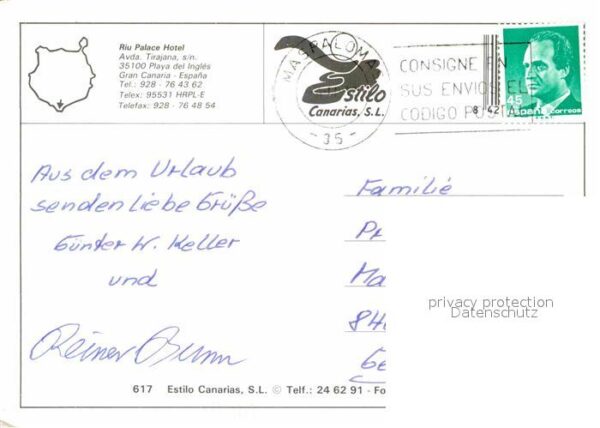 Riu Palace Hotel
Avda. Tirajana, s/n.
35100 Playa del Inglés
Gran Canaria - España
Tel.: 928 - 76 43 62
Telex: 95531 HRPL-E
Telefax: 928 - 76 48 54
Estilo
Canarias, S.L.
MASPALOMAS
-35-
CONSIGNE EN
SUS ENVIOS EL
CODIGO POSTAL
45
España correos
8 42
Aus dem Urlaub
senden liebe Grüße
Günter W. Keller
und
Reiner
Familie
privacy protection
Datenschutz
617 Estilo Canarias, S.L. © Telf.: 24 62 91 - Fo